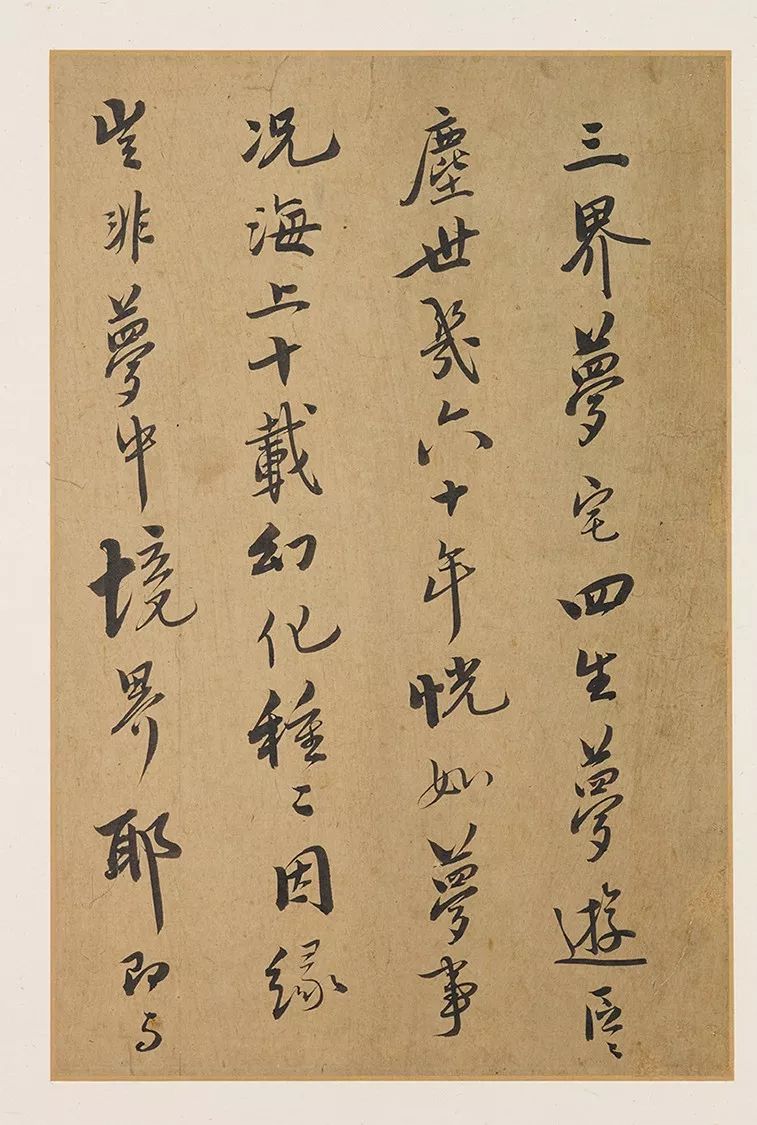 三界夢宅四生夢遊區〻
塵世幾六十年恍如夢事
况海上十載幻化種〻因緣
豈非夢中境界耶即与